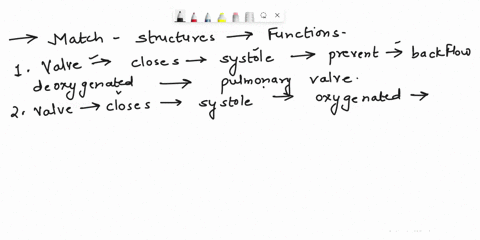 → Match - structures → Functions-
1. Valve → closes → systole → prevent → backflow
deoxygenated → pulmonary valve.
2. valve → closes → systole → oxygenated →